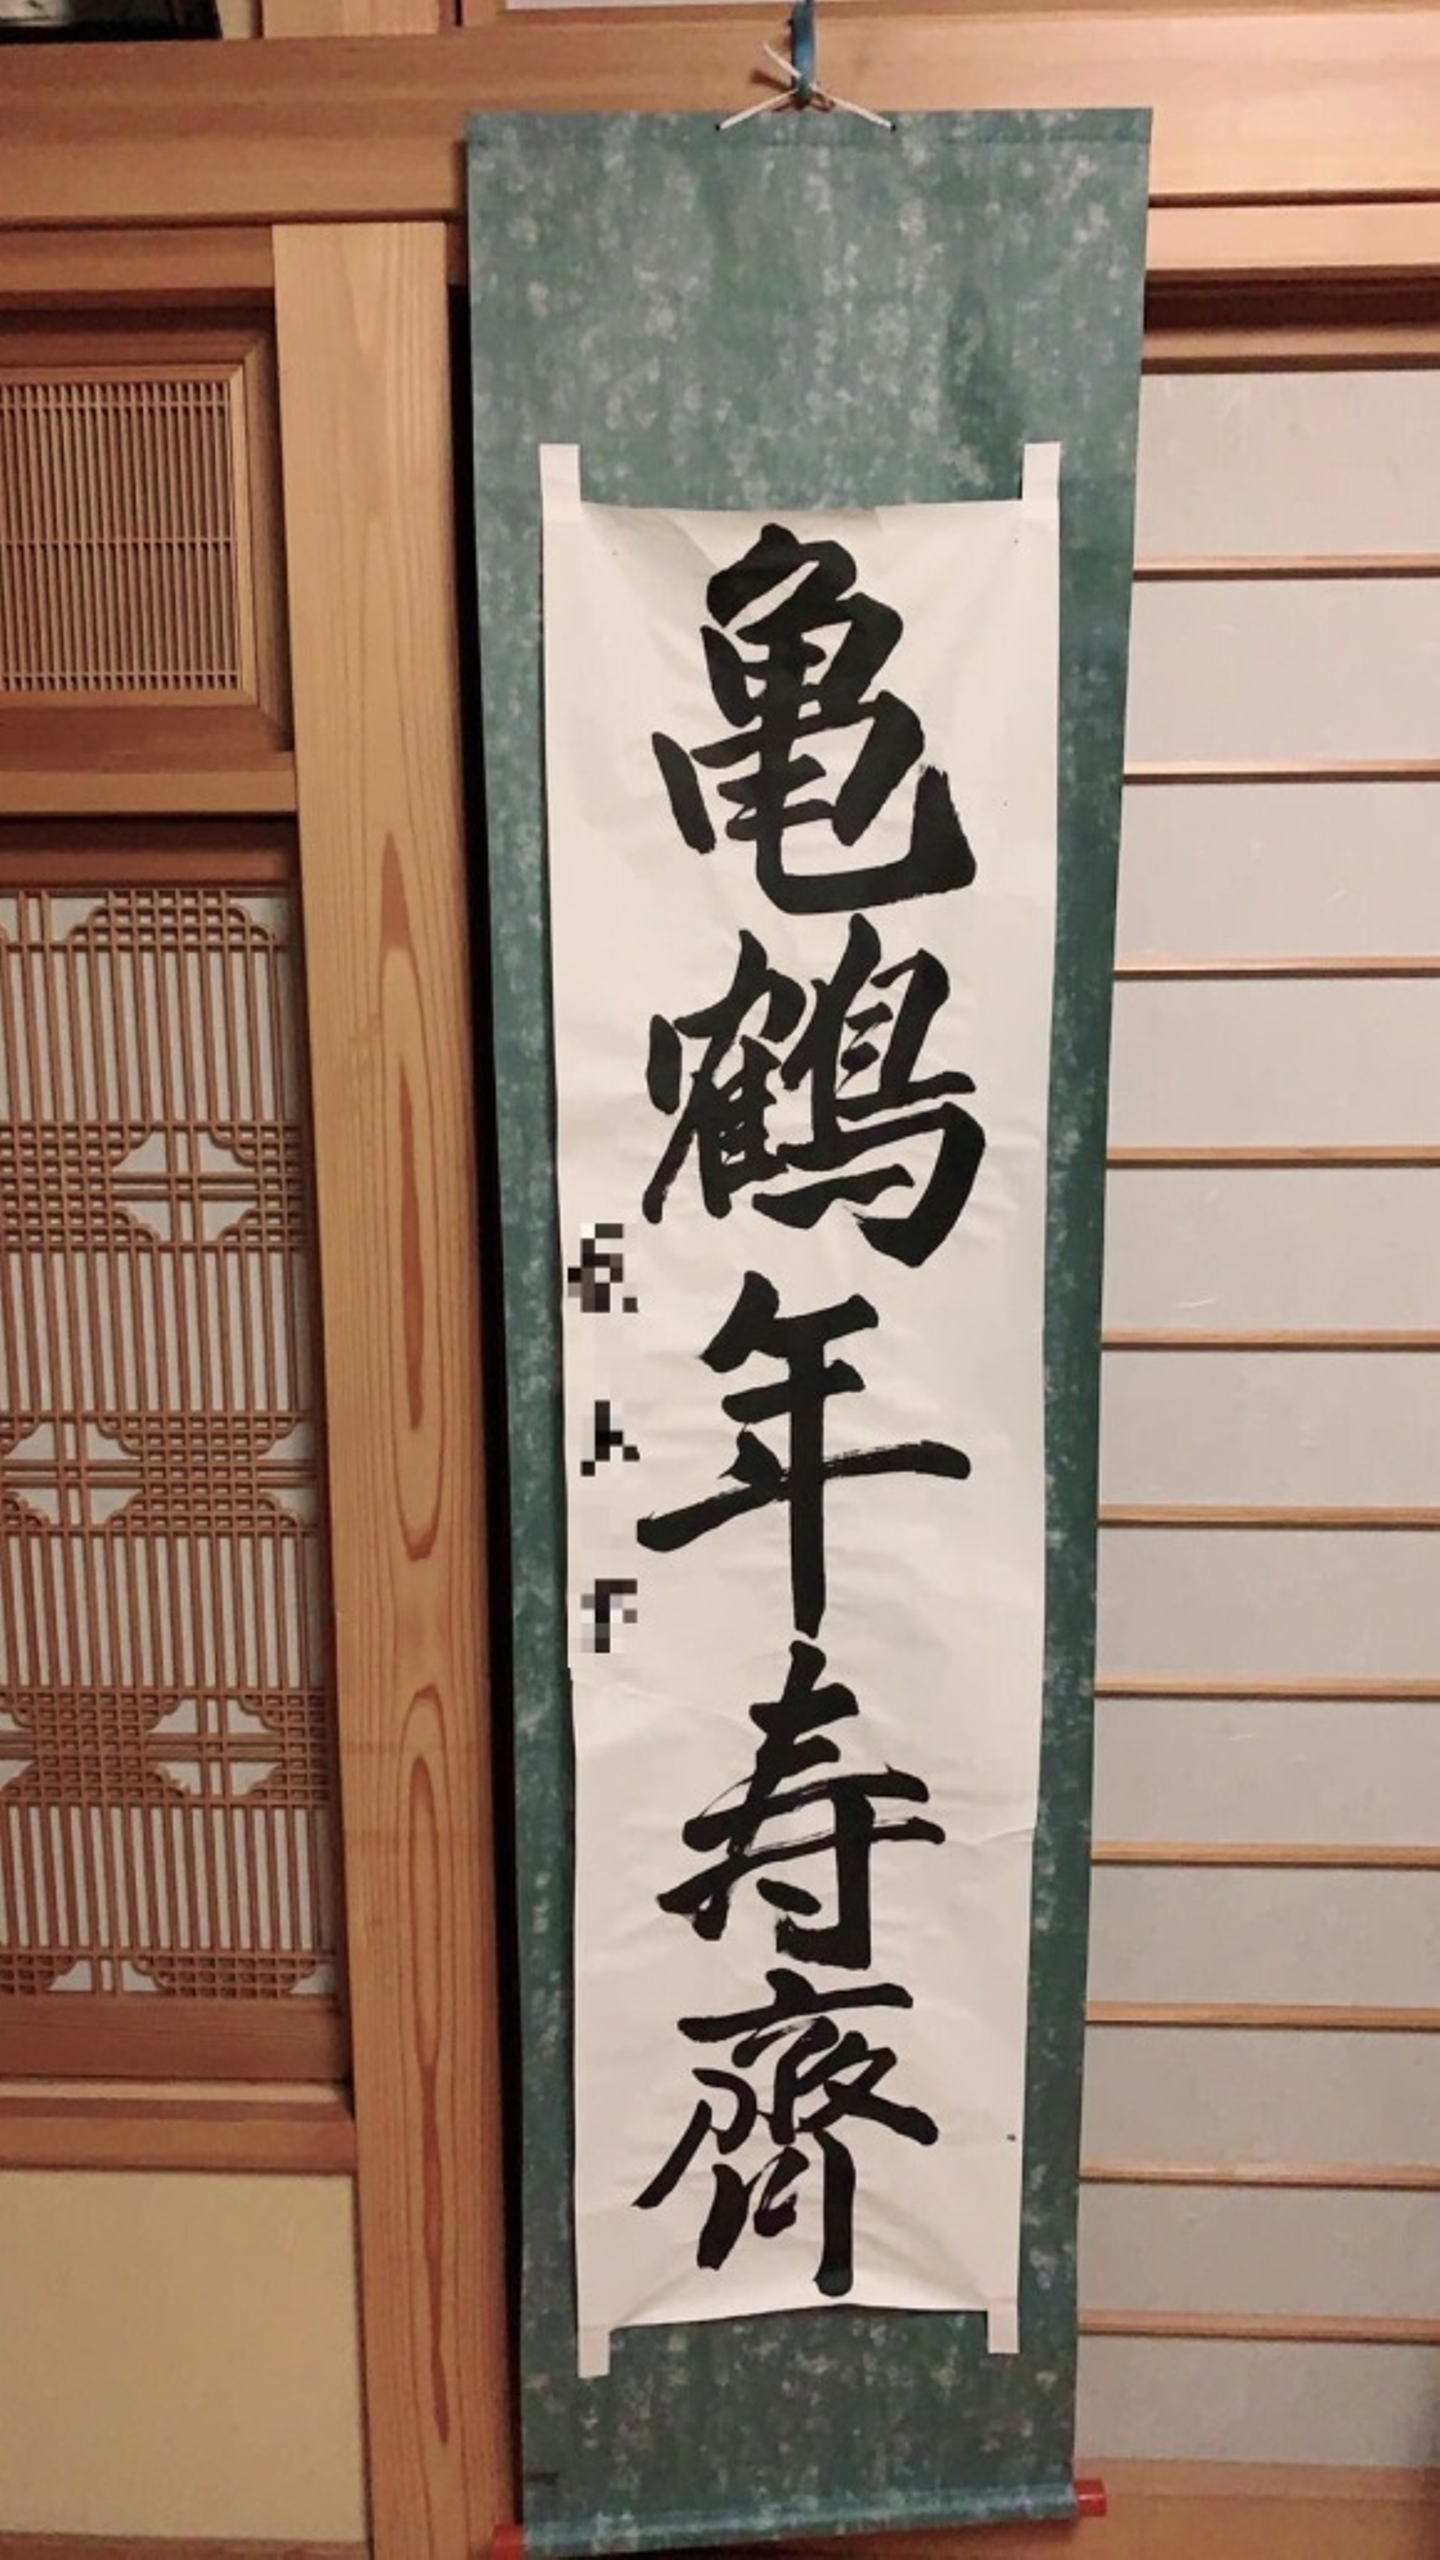 亀鶴年寿齊